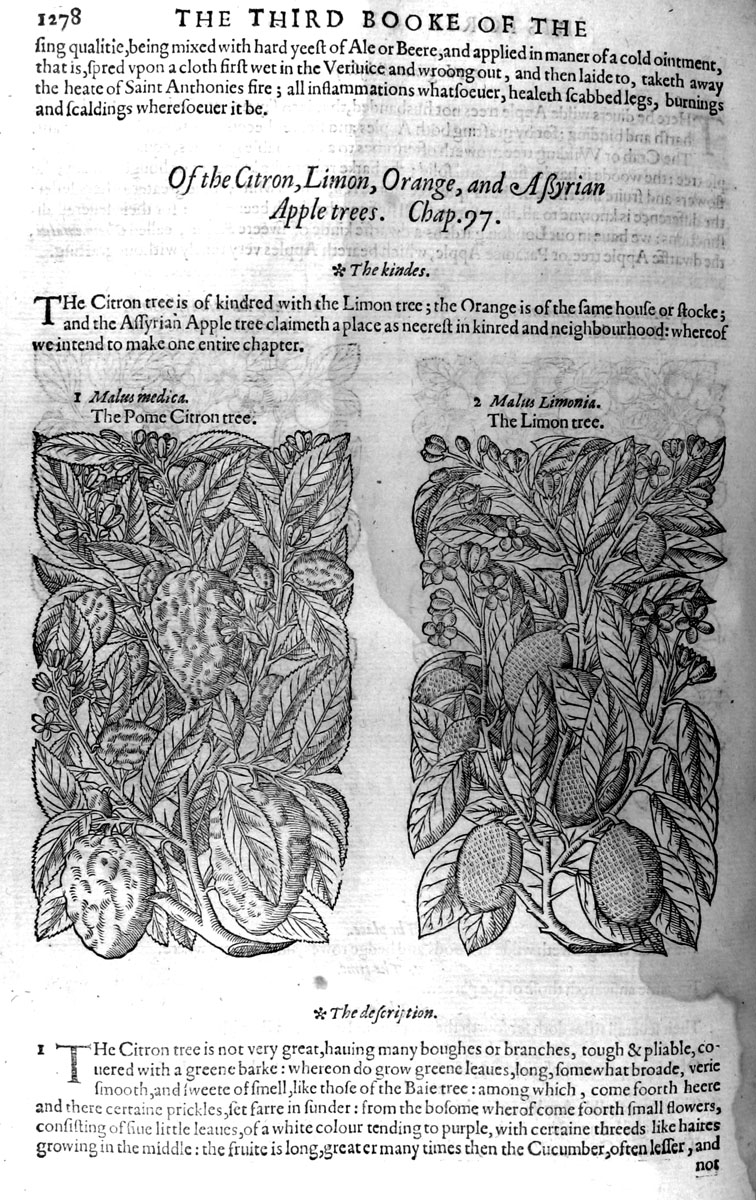 1278 THE THIRD BOOKE OF THE
ſing qualitie,being mixed with hard yeeſt of Ale or Beere,and applied in maner of a cold ointment,
that is,ſpred vpon a cloth firſt wet in the Veriuice and wroong out, and then laide to, taketh away
the heate of Saint Anthonies fire; all inflammations whatſoeuer, healeth ſcabbed legs, burnings
and ſcaldings whereſoeuer it be.
Of the Citron, Limon, Orange, and Aſſyrian
Apple trees. Chap.97.
✻ The kindes.
THe Citron tree is of kindred with the Limon tree; the Orange is of the ſame houſe or ſtocke;
and the Aſſyrian Apple tree claimeth a place as neereſt in kinred and neighbourhood: whereof
we intend to make one entire chapter.
1 Malus medica.
The Pome Citron tree.
2 Malus Limonia.
The Limon tree.
✻ The deſcription.
1 THe Citron tree is not very great,hauing many boughes or branches, tough & pliable, co-
uered with a greene barke: whereon do grow greene leaues,long, ſomewhat broade, verie
ſmooth,and ſweete of ſmell,like thoſe of the Baie tree: among which, come foorth heere
and there certaine prickles,ſet farre in ſunder: from the boſome wherof come foorth ſmall flowers,
conſiſting of fiue little leaues,of a white colour tending to purple, with certaine threeds like haires
growing in the middle: the fruite is long,greater many times then the Cucumber,often leſſer, and
not